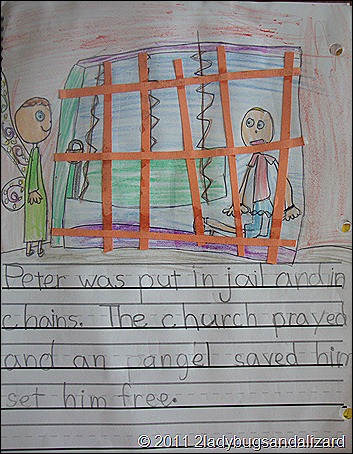 Peter was put in jail and in
chains. The church prayed
and an angel saved him
set him free.
© 2011 2ladybugsandalizard